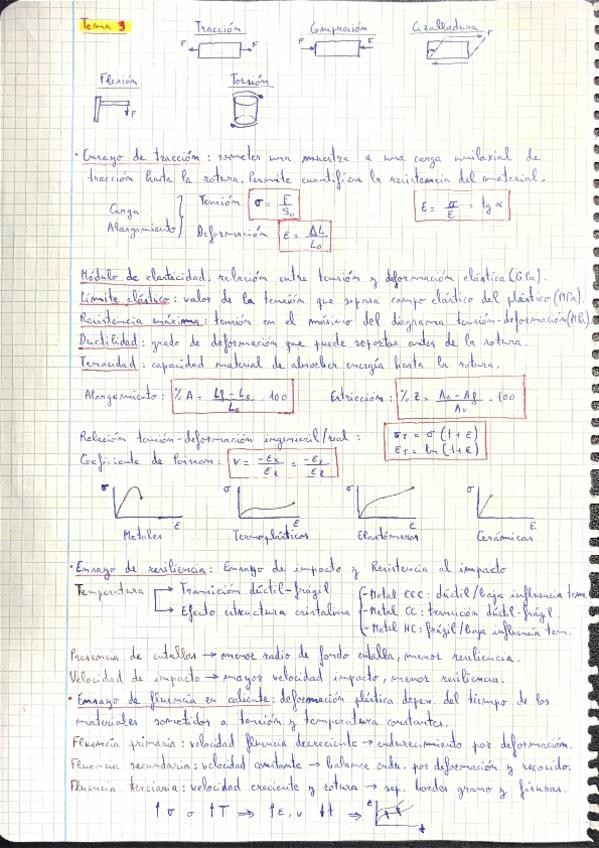 Tema 3
Tracción Compresión Cizalladura
F F F F F
Flexión Torsión
F
• Ensayo de tracción: someter una muestra a una carga uniaxial de
tracción hasta la rotura. Permite cuantificar la resistencia del material.
Carga
Alargamiento
Tensión σ = F/S₀
Deformación ε = ΔL/L₀
E = σ/ε = tg α
Módulo de elasticidad: relación entre tensión y deformación elástica (GPa).
Límite elástico: valor de la tensión que separa campo elástico del plástico (MPa).
Resistencia máxima: tensión en el máximo del diagrama tensión-deformación (MPa)
Ductilidad: grado de deformación que puede soportar antes de la rotura.
Tenacidad: capacidad material de absorber energía hasta la rotura.
Alargamiento: % A = (Lf - L₀)/L₀ · 100 Estricción: % Z = (A₀ - Af)/A₀ · 100
Relación tensión-deformación ingenieril/real: σT = σ (1+ε)
εT = ln (1+ε)
Coeficiente de Poisson: ν = -εx/εz = -εy/εz
σ σ σ σ
ε ε ε ε
Metales Termoplásticos Elastómeros Cerámicas
• Ensayo de resiliencia: Ensayo de impacto y Resistencia al impacto
Temperatura → Transición dúctil-frágil
→ Efecto estructura cristalina
- Metal CCC: dúctil/baja influencia tem.
- Metal CC: transición dúctil-frágil
- Metal HC: frágil/baja influencia tem.
Presencia de entallas → menor radio de fondo entalla, menor resiliencia.
Velocidad de impacto → mayor velocidad impacto, menor resiliencia.
• Ensayo de fluencia en caliente: deformación plástica depen. del tiempo de los
materiales sometidos a tensión y temperatura constantes.
Fluencia primaria: velocidad fluencia decreciente → endurecimiento por deformación.
Fluencia secundaria: velocidad constante → balance endu. por deformación y recocido.
Fluencia terciaria: velocidad creciente y rotura → sep. bordes grano y fisuras.
↑ σ o ↑ T ⇒ ↑ ε, v ↓ t ⇒ ε
t